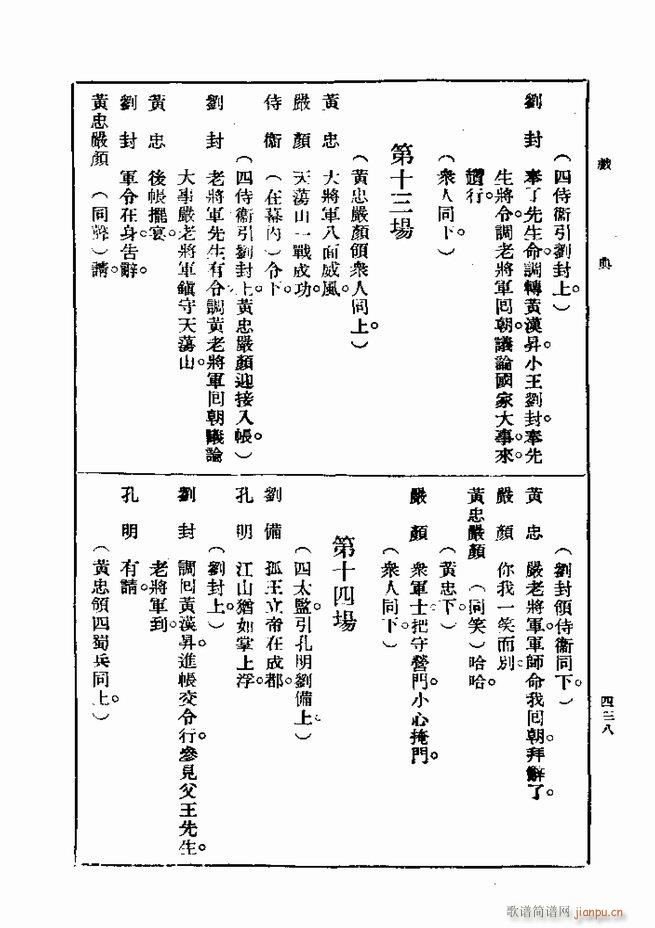 戲典
四三八
(四侍衞引劉封上。)
劉封 奉了先生命。調轉黃漢昇。小王劉封。奉先
生將令。調老將軍囘朝。議論國家大事。來
趲行。
(衆人同下。)
第十三場
(黃忠嚴顏領衆人同上。)
黃忠 大將軍八面威風。
嚴顏 天蕩山一戰成功。
侍衞 (在幕內)令下。
(四侍衞引劉封上。黃忠嚴顏迎接入帳。)
劉封 老將軍。先生有令。調黃老將軍囘朝。議論
大事。嚴老將軍鎭守天蕩山。
黃忠 後帳擺宴。
劉封 軍令在身。告辭。
黃忠嚴顏 (同聲)請。
(劉封領侍衞同下。)
黃忠 嚴老將軍。軍師命我囘朝。拜辭了。
嚴顏 你我一笑而別。
黃忠嚴顏 (同笑)哈哈。
(黃忠下。)
嚴顏 衆軍士。把守營門。小心掩門。
(衆人同下。)
第十四場
(四太監引孔明劉備上。)
劉備 孤王立帝在成都。
孔明 江山猶如掌上浮。
(劉封上。)
劉封 調囘黃漢昇。進帳交令行。參見父王先生。
老將軍到。
孔明 有請。
(黃忠領四蜀兵同上。)
歌谱简谱网 jianpu.cn